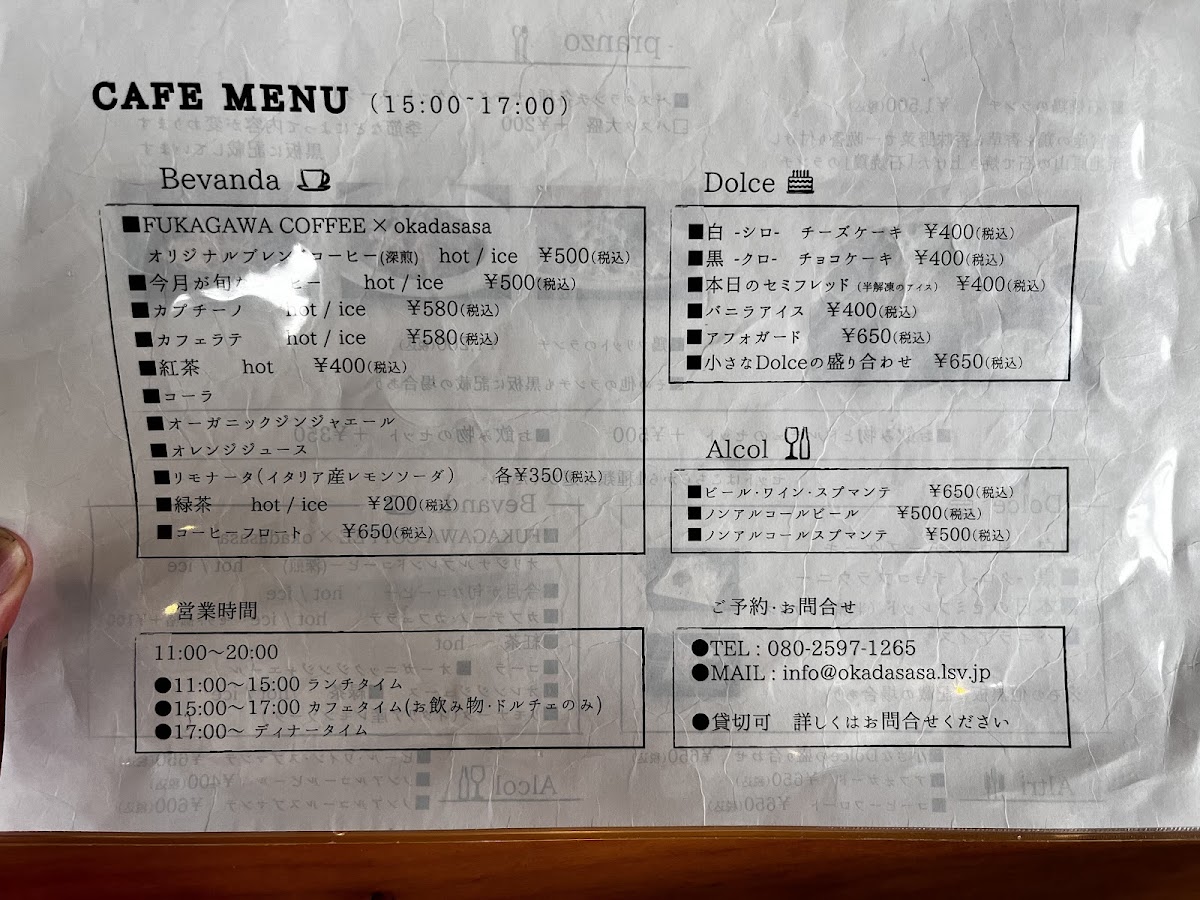 CAFE MENU (15:00~17:00)
Bevanda
■FUKAGAWA COFFEE×okadasasa
オリジナルブレンドコーヒー(深煎) hot / ice ¥500(税込)
■今月が旬 ヒー hot / ice ¥500(税込)
■カプチーノ hot / ice ¥580(税込)
■カフェラテ hot / ice ¥580(税込)
■紅茶 hot ¥400(税込)
■コーラ
■オーガニックジンジャエール
■オレンジジュース
■リモナータ(イタリア産レモンソーダ) 各¥350(税込)
■緑茶 hot / ice ¥200(税込)
■コーヒーフロート ¥650(税込)
Dolce
■白 -シロ- チーズケーキ ¥400(税込)
■黒 -クロ- チョコケーキ ¥400(税込)
■本日のセミフレッド(半解凍のアイス) ¥400(税込)
■バニラアイス ¥400(税込)
■アフォガード ¥650(税込)
■小さなDolceの盛り合わせ ¥650(税込)
Alcol
■ビール・ワイン・スプマンテ ¥650(税込)
■ノンアルコールビール ¥500(税込)
■ノンアルコールスプマンテ ¥500(税込)
営業時間
11:00〜20:00
●11:00〜15:00 ランチタイム
●15:00〜17:00 カフェタイム(お飲み物・ドルチェのみ)
●17:00〜 ディナータイム
ご予約・お問合せ
●TEL : 080-2597-1265
●MAIL : info@okadasasa.lsv.jp
●貸切可 詳しくはお問合せください